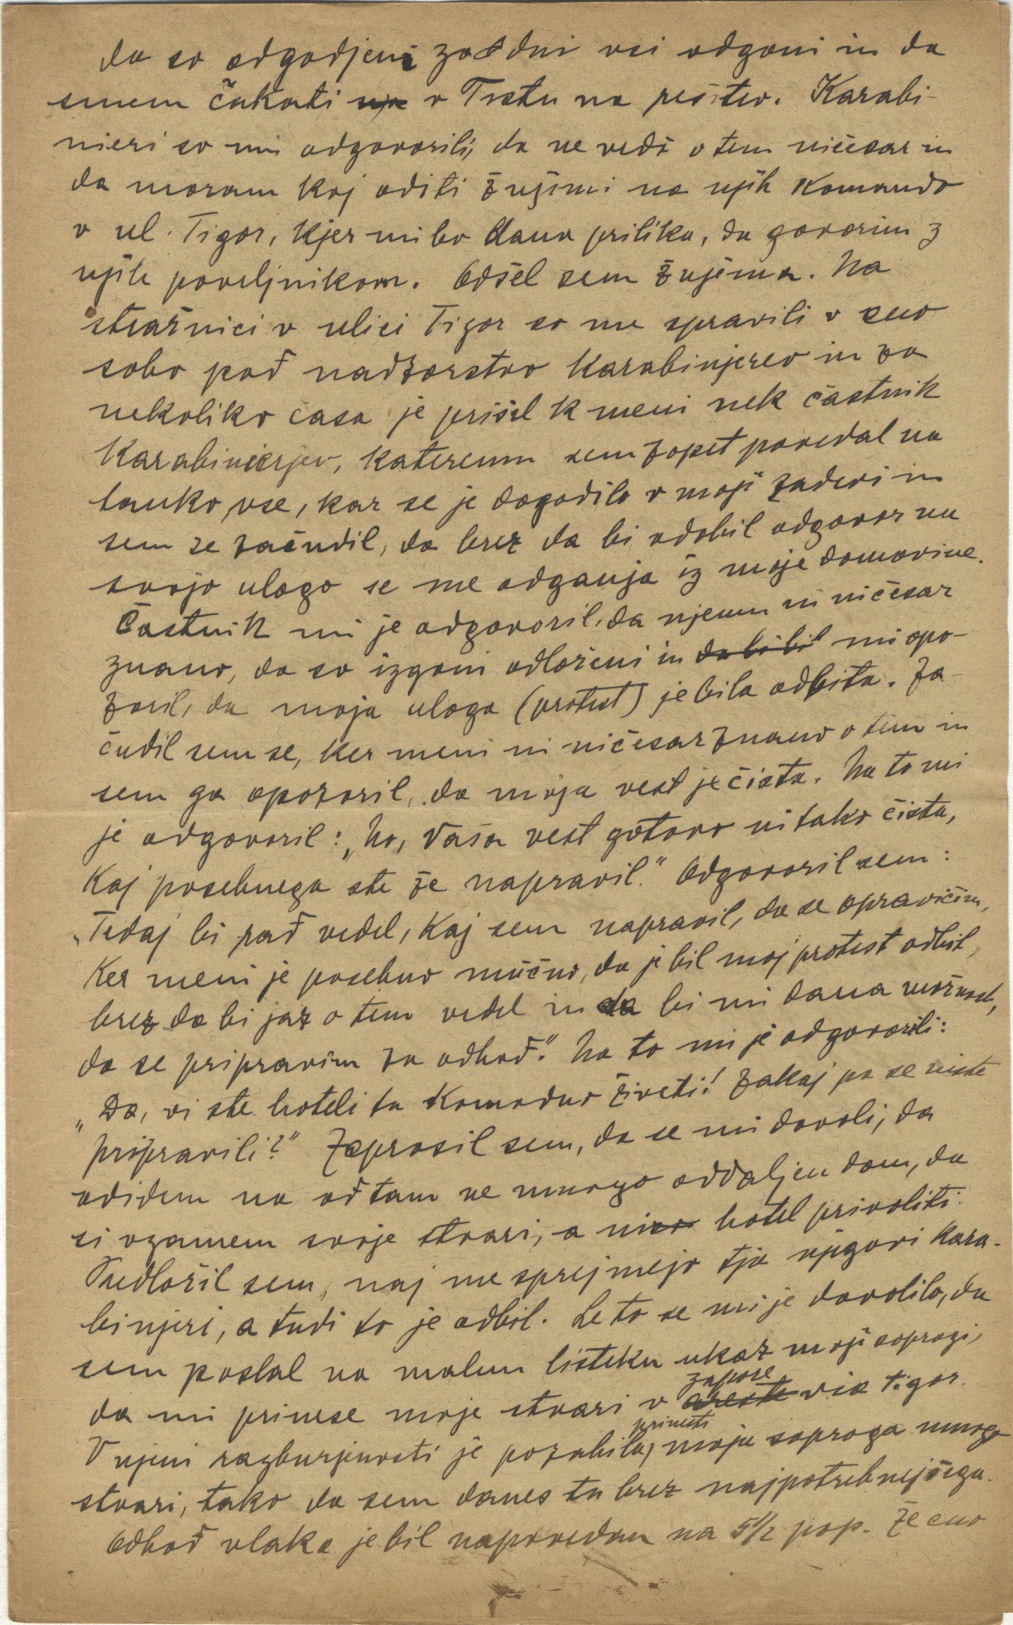 da so odgodjeni za 8 dni vsi odgoni in da
smem čakati na v Trstu na rešitev. Karabi-
nieri so mi odgovorili, da ne vedó o tem ničesar in
da moram koj oditi ž njimi na njih Komando
v ul. Tigor, kjer mi bo dana prilika, da govorim z
njih poveljnikom. Odšel sem ž njima. Na
stražnici v ulici Tigor so me spravili v eno
sobo pod nadzorstvo karabinjerev in za
nekoliko časa je prišel k meni nek častnik
Karabinierjev, kateremu sem zopet povedal na
tanko vse, kar se je dogodilo v moji zadevi in
sem se začudil, da brez da bi odobil odgovor na
svojo ulogo se me odganja iz moje domovine.
Častnik mi je odgovoril, da njemu ni ničesar
znano, da so izgoni odloženi in da bi bil mi opo-
zoril, da moja uloga (protest) je bila odbita. Za-
čudil sem se, ker meni ni ničesar znano o tem in
sem ga opozoril, da moja vest je čista. Na to mi
je odgovoril: „No, Vaša vest gotovo ni tako čista,
Kaj posebnega ste že napravil." Odgovoril sem:
„Tedaj bi rad vedel, kaj sem napravil, da se opravičim,
ker meni je posebno mučno, da je bil moj protest odbit,
brez da bi jaz o tem vedel in da bi mi dana možnost,
da se pripravim za odhod." Na to mi je odgovorili:
„Da, vi ste hoteli tu komodno živeti! Zakaj pa se niste
pripravili?" Zaprosil sem, da se mi dovoli, da
odidem na od tam ne mnogo oddaljen dom, da
si vzamem svoje stvari, a ni hotel privoliti.
Predložil sem, naj me sprejmejo tja njegovi kara-
binjeri, a tudi to je odbil. Le to se mi je dovolilo, da
sem poslal na malem listeku ukaz moji soprogi,
da mi prinese moje stvari v areste zapore via Tigor.
V njeni razburjenosti je pozabila prinesti moja soproga mnogo
stvari, tako da sem danes tu brez najpotrebnejšega.
Odhod vlaka je bil napovedan na 5½ pop. Že eno